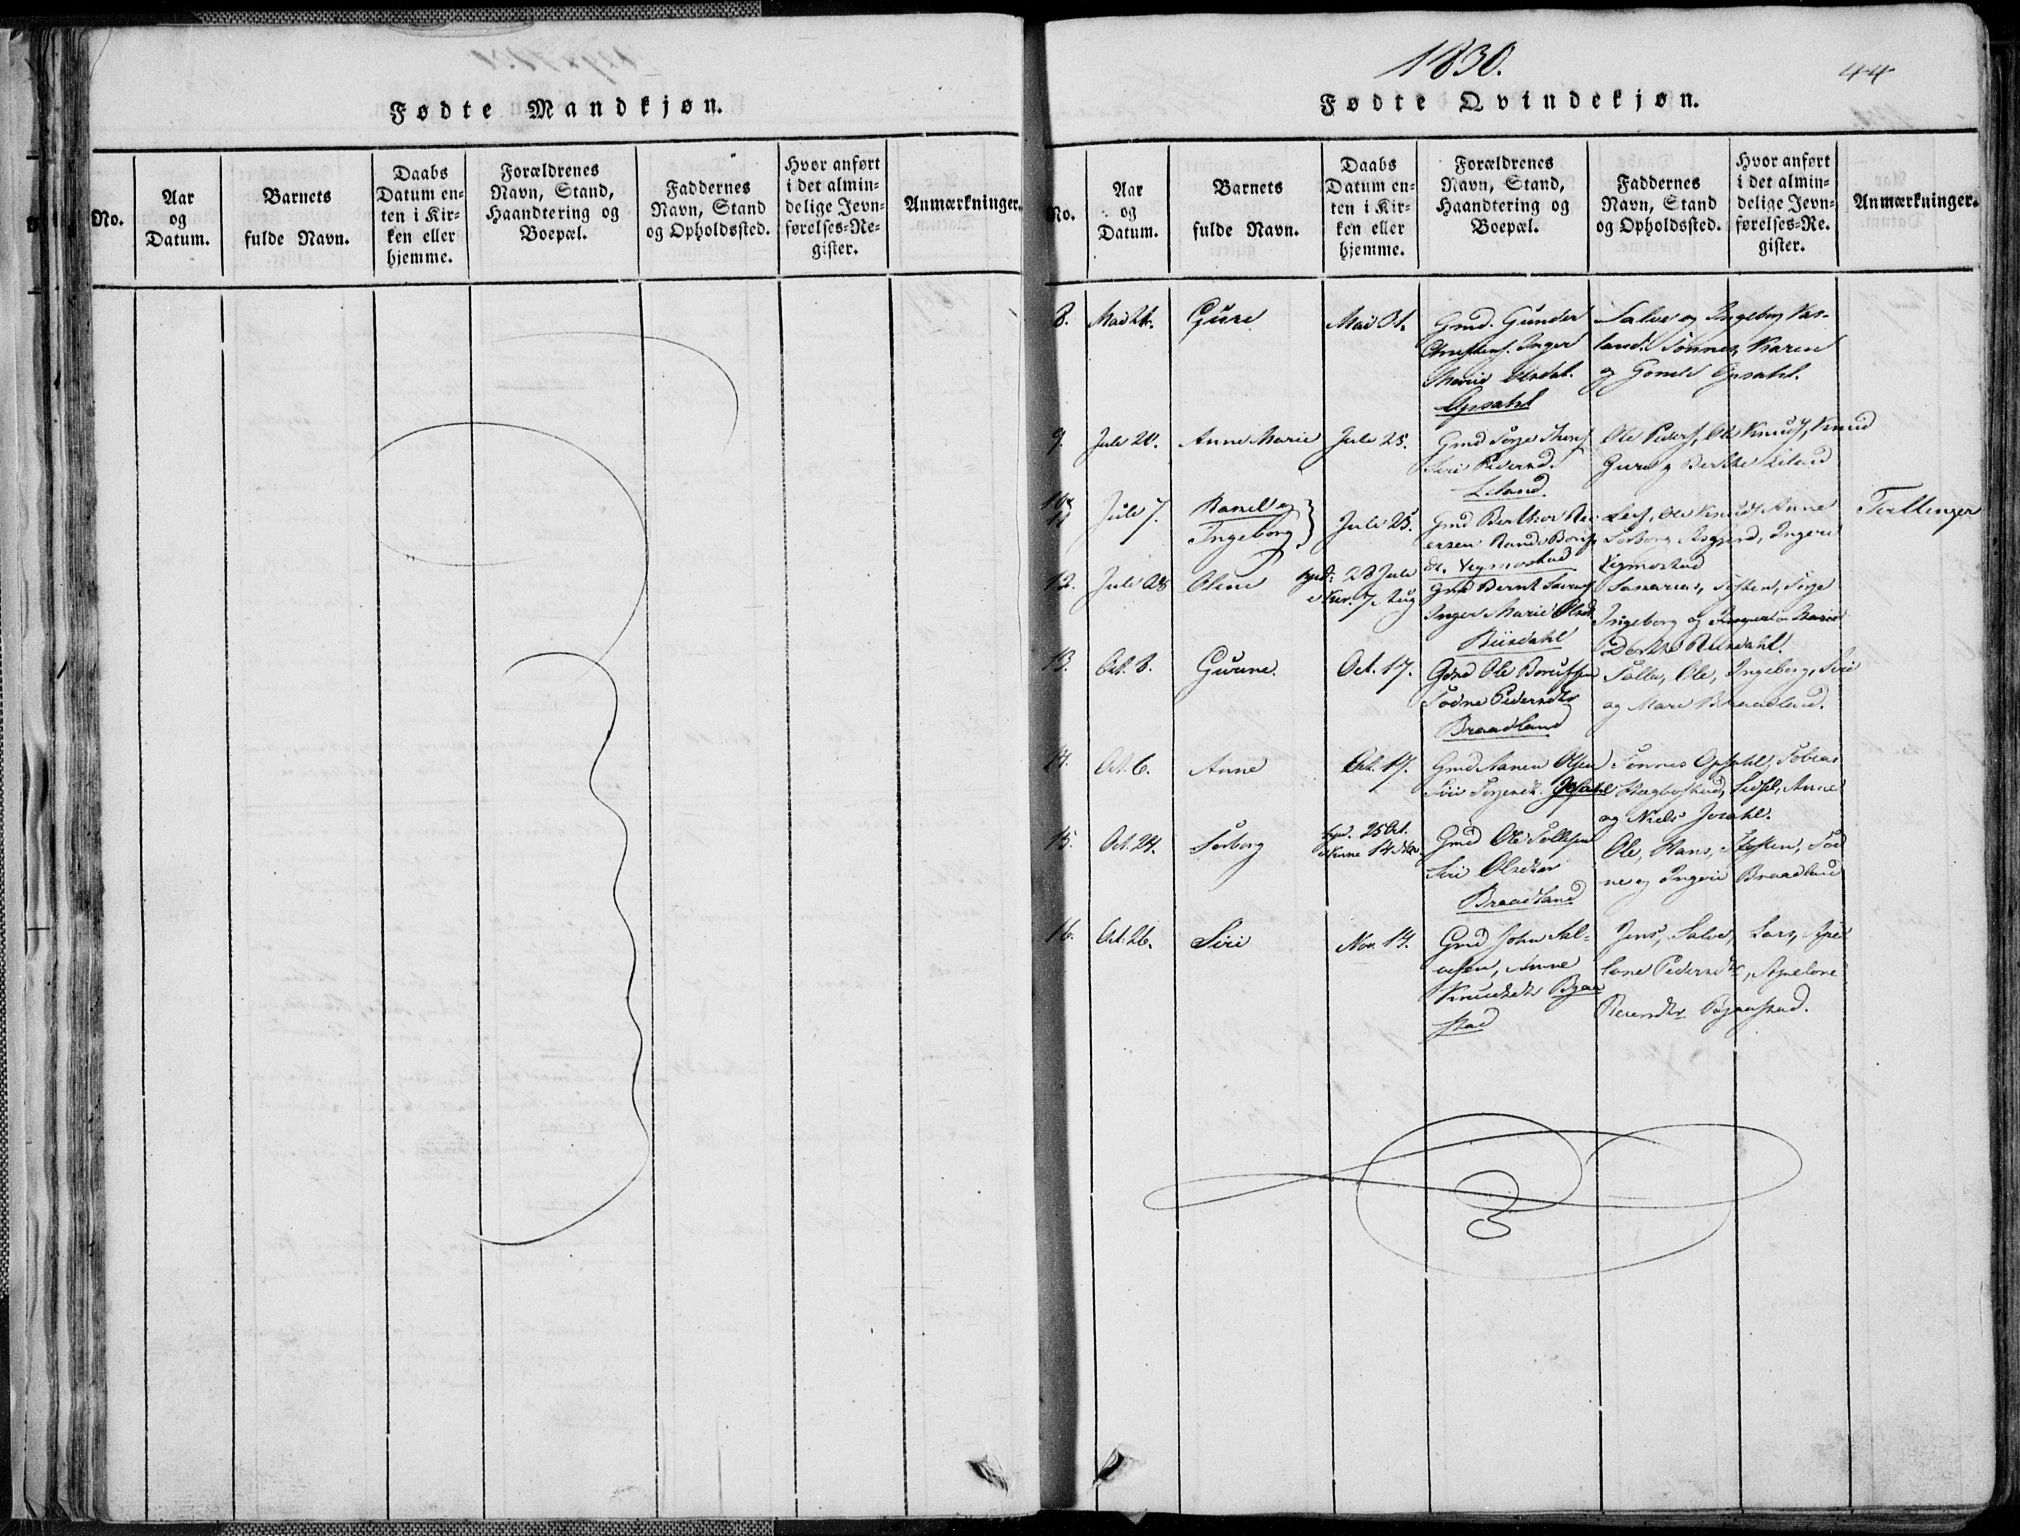 Fødte Mandkjøn.
No.
Aar
og
Datum.
Barnets
fulde Navn.
Daabs
Datum en-
ten i Kir-
ken eller
hjemme.
Forældrenes
Navn, Stand,
Haandtering og
Boepæl.
Faddernes
Navn, Stand
og Opholdssted.
Hvor anført
i det almin-
delige Jevn-
førelses-Re-
gister.
Anmærkninger.
1830.
44
Fødte Qvindekjøn.
No.
Aar
og
Datum.
Barnets
fulde Navn.
Daabs
Datum en-
ten i Kir-
ken eller
hjemme.
Forældrenes
Navn, Stand,
Haandtering og
Boepæl.
Faddernes
Navn, Stand
og Opholdssted.
Hvor anført
i det almin-
delige Jevn-
førelses-Re-
gister.
Anmærkninger.
8.
Mai 24.
Mai 31.
Gmd. Gunder
Inger
Marie Olsdat.
Opsahl
Salve og Ingeborg
Tønnes, Karen
og Opsahl.
9.
Jule 20.
Anne Marie
Jule 25.
Gmd Torje
Siri Pedersd.
Leland
Ole Peders, Ole Knuds, Knud
Guro og Berthe Leland
Jule 7.
Ranel og
Ingeborg
Jule 25.
Gmd Berthor Rei-
ersen
Vigmostad
Leif, Ole Knuds, Anne
Torborg Asgjerd, Ingeri
Vigmostad
Tvillinger
12.
Jule 28
Oline
hjd. 28 Jule
i Kir. 7 Aug
Gmd Bernt
Inger Marie Olsd.
Ingeborg og
13.
Oct. 8.
Gurine.
Oct. 17.
Gmd Ole
Todne Pedersdtr
Braadland
Ole, Ingeborg, Siri
og Mari Braadland.
14.
Oct. 6.
Anne
Oct. 17.
Gmd Olsen
Siri Josahl
Tønnes Opsahl, Tobias
Hægbostad, Anne
og Niels Josahl.
15.
Oct. 24.
Torborg
hjd. 25 Oct.
i Kirke 14 Nov
Gmd Ole Tollefsen
Siri Olsdtter
Braadland
Ole, Hans, Tod
ne og Ingeri Braadland
16.
Oct. 26.
Siri
Nov. 14.
Gmd John Sal-
vesen, Anne
Knudsdtr Bjaa
stad
Jens, Salve, Lars, Apel
lone Pedersdtr, Apelone
Reiersdtr Bjaastad.